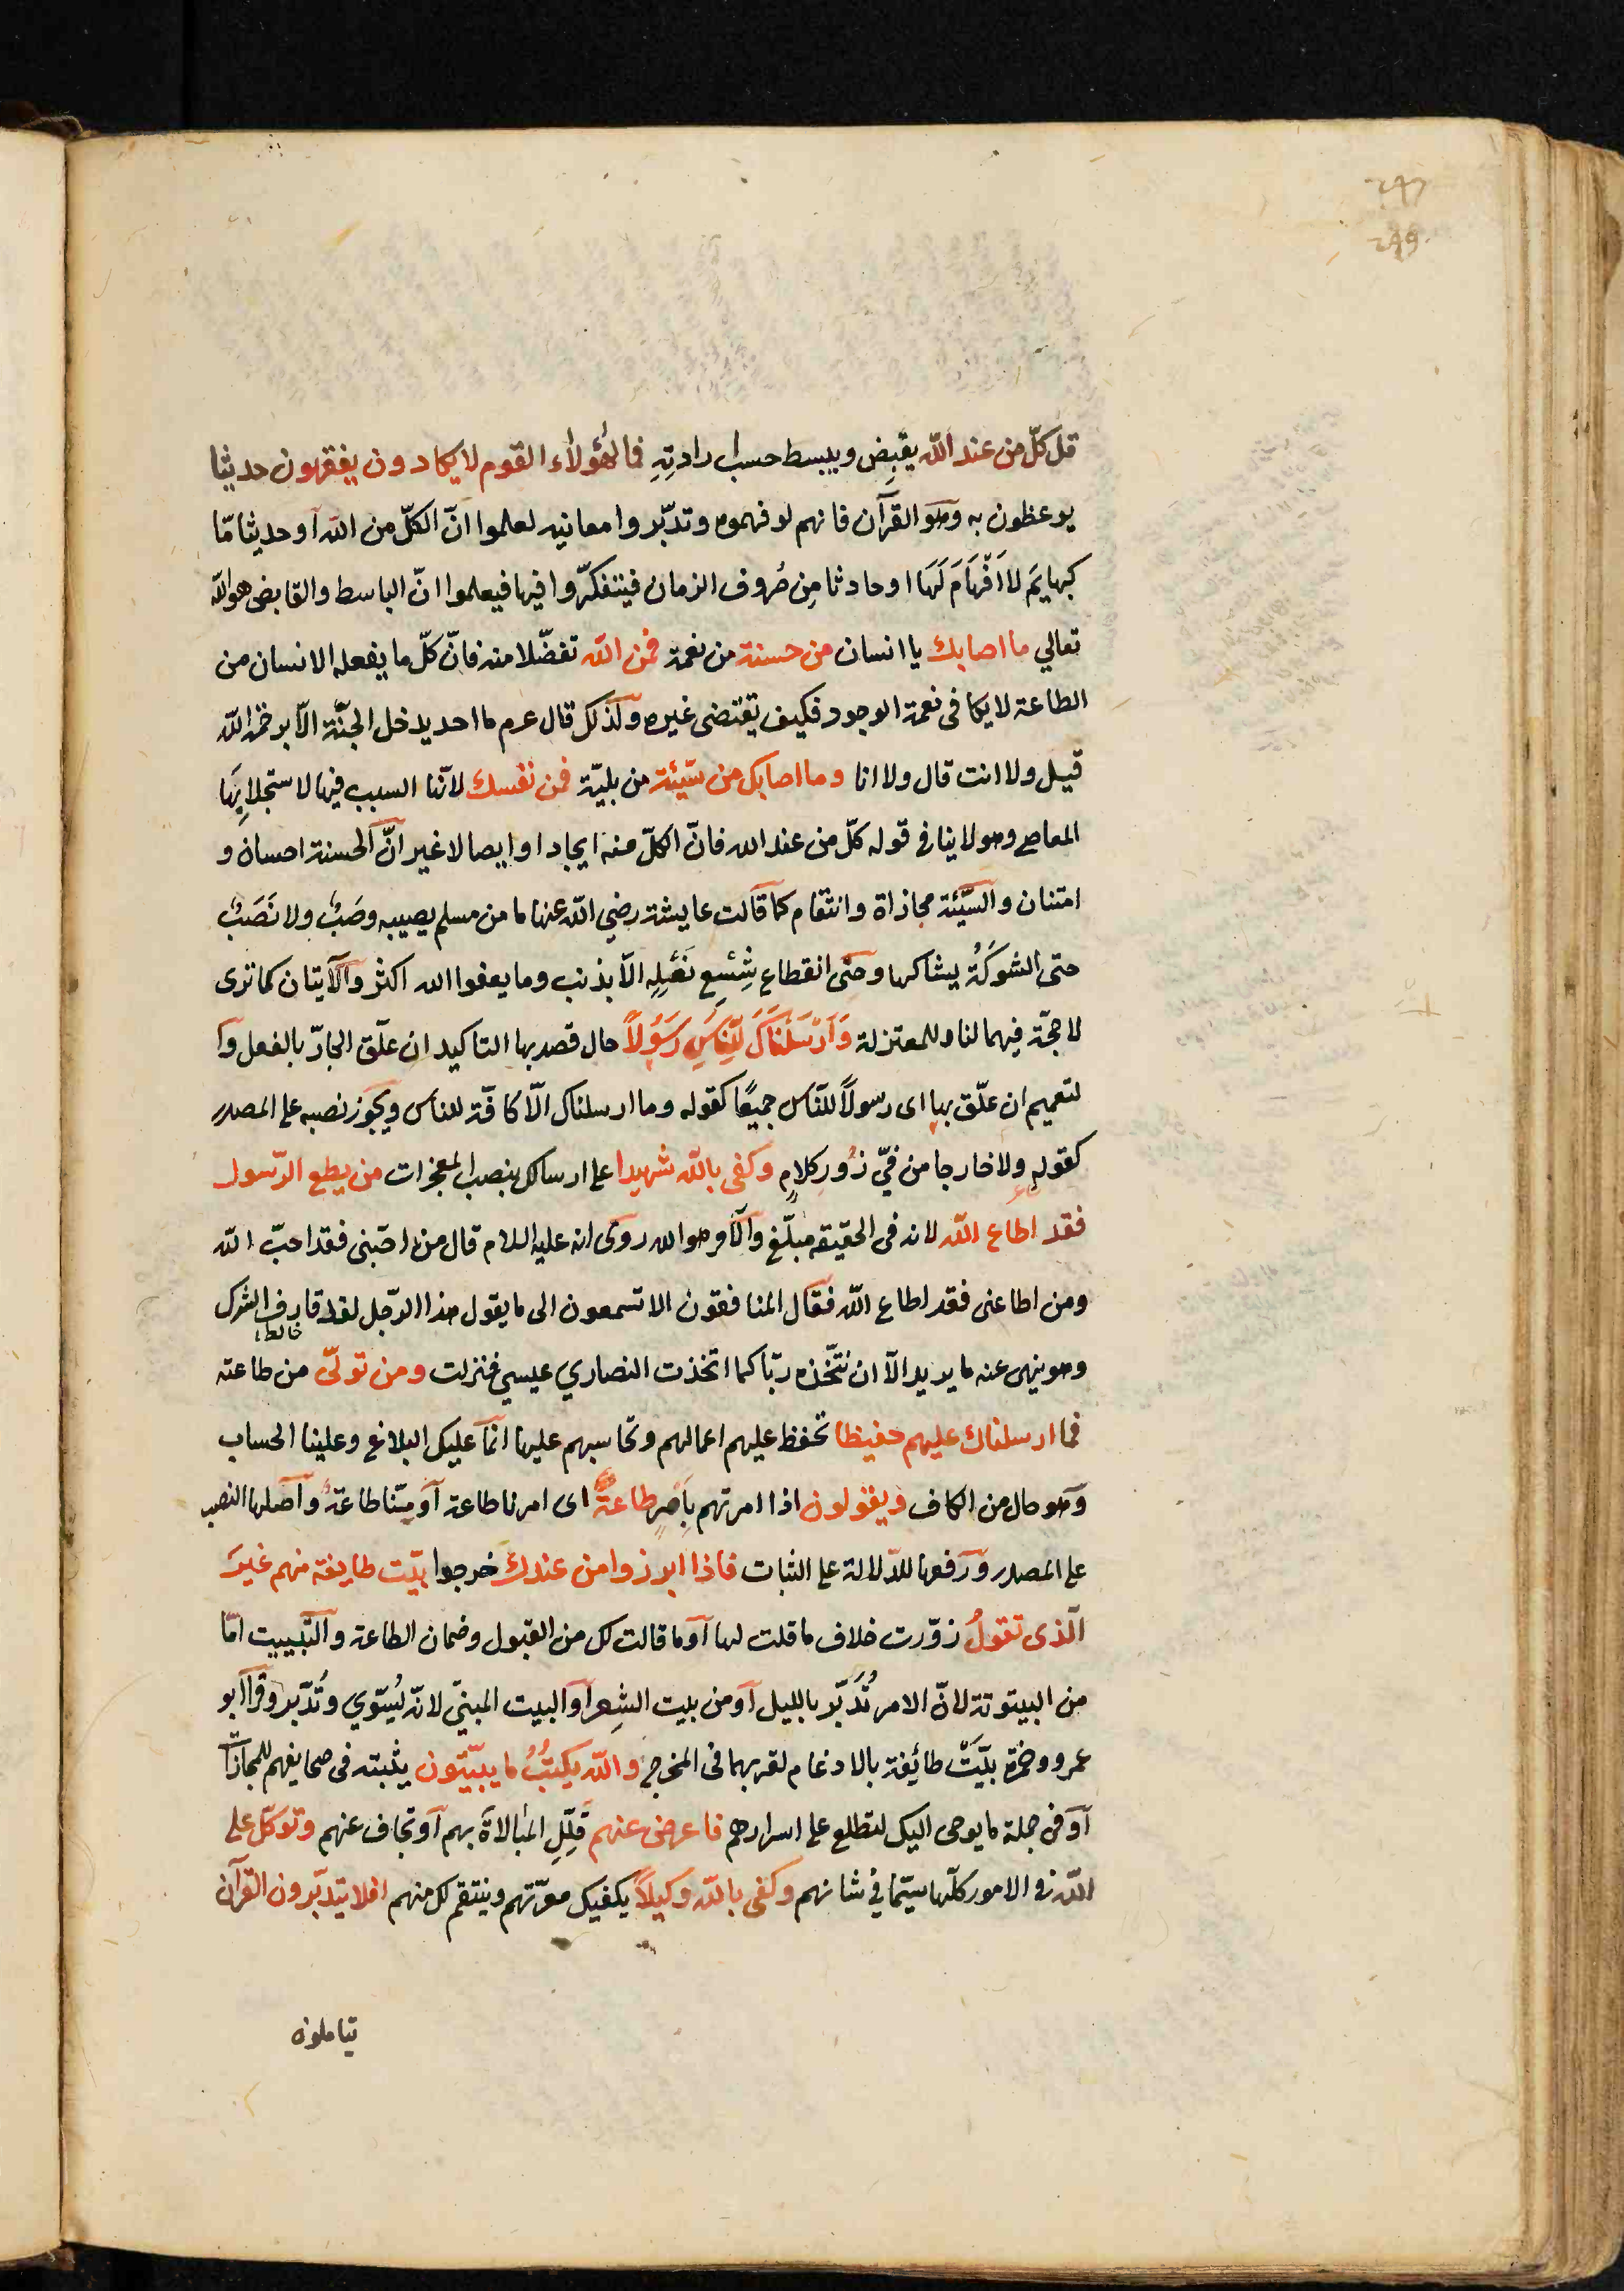 قل كلّ من عند اللّه يقبِض ويبسط حسب ارادتِهِ فمالهؤلاء القوم لا يكادون يفقهون حديثا
يوعظون به وهو القرآن فانهم لو فهموه وتدبّروا معانيه لعلموا انّ الكلّ من اللّه او حديثا مّا
كبهايمَ لا اَفْهَامَ لَهَا او حادثا مِن صُروف الزمان فيتفكّروا فيها فيعلموا انّ الباسط والقابض هو اللّه
تعالي ما اصابك يا انسان من حسنة من نعمة فمن اللّه تفضّلا منه فانّ كلّ ما يفعله الانسان من
الطاعة لا يكافى نعمة الوجود فكيف يقتضى غيره ولذلك قال عرم ما احد يدخل الجنّة الّا برحمة اللّه
قيل ولا انت قال ولا انا وما اصابك من سيّئة من بليّة فمن نفسك لانّها السبب فيها لاستجلابِهَا
المعاصي وهو لا ينافي قوله كلّ من عند الله فانّ الكلّ منه ايجادا وايصالا غير انّ الحسنة احسان و
امتنان والسّيّئة مجازاة وانتقام كما قالت عايشة رضي اللّه عنها ما من مسلم يصيبه وصَبٌ ولا نَصَبٌ
حتى الشوكَةُ يشاكها وحتّى انقطاع شِسْعِ نَعْلِهِ الّا بذنب وما يعفوا الله اكثر والآيتان كما ترى
لا حجّة فيهما لنا وللمعتزلة وَاَرْسَلْنَاكَ لِلنَّاسِ رَسُولًا حال قصد بها التاكيد ان علّق الجارّ بالفعل وا
لتعميم ان علّق بها اى رسولاً للنّاس جميعًا كقوله وما ارسلناك الّا كافّة للناس ويجوز نصبه على المصدر
كقوله ولا خارجا من فيّ زُورِ كلامٍ وكفى باللّه شهيدا على ارسالك بنصب المعجزات من يطع الرّسول
فقد اطاع اللّه لانه فى الحقيقة مبلّغ والآمر هو الله روى انه عليه السلام قال من احبّنى فقد احبّ اللّه
ومن اطاعنى فقد اطاع اللّه فقال المنافقون الا تسمعون الى ما يقول هذا الرّجل لقد قارف الشرك
خالط
وهو ينهى عنه ما يريد الّا ان نتّخذه ربّا كما اتخذت النصاري عيسي فنزلت ومن تولّى من طاعته
فما ارسلناك عليهم حفيظا تحفظ عليهم اعمالهم وتحاسبهم عليها انّما عليك البلاغ وعلينا الحساب
وهو حال من الكاف ويقولون اذا امرتهم بِاَمرٍ طاعةٌ اى امرنا طاعة او منّا طاعةٌ واصلها النصب
على المصدر ورفعها للدّلالة على الثبات فاذا ابرزوا من عندك خرجوا بيّت طايفة منهم غيرَ
الّذى تقولُ زوّرت خلاف ما قلت لها او ما قالت لك من القبول وضمان الطاعة والتّبييت امّا
من البيتوتة لانّ الامر تُدَبَّر بالليل او من بيت الشِعر او البيت المبنيّ لانّه يُسَوّي وتُدَبَّر وقرا ابو
عمرو وحمزة بيّتْ طائِفة بالادغام لقربهما فى المخرج واللّه يكتُبُ ما يبيّتون يثبته فى صحايفهم للمجازاة
او فى جملة ما يوحى اليك لتطلع على اسرارهم فاعرض عنهم قَلِّلِ المبالاةَ بهم او تجاف عنهم وتوكّل على
اللّه فى الامور كلّها سيّما في شانهم وكفى باللّه وكيلاً يكفيك معرّتهم وينتقم لك منهم افلا يتدبّرون القرآن
يتاملون